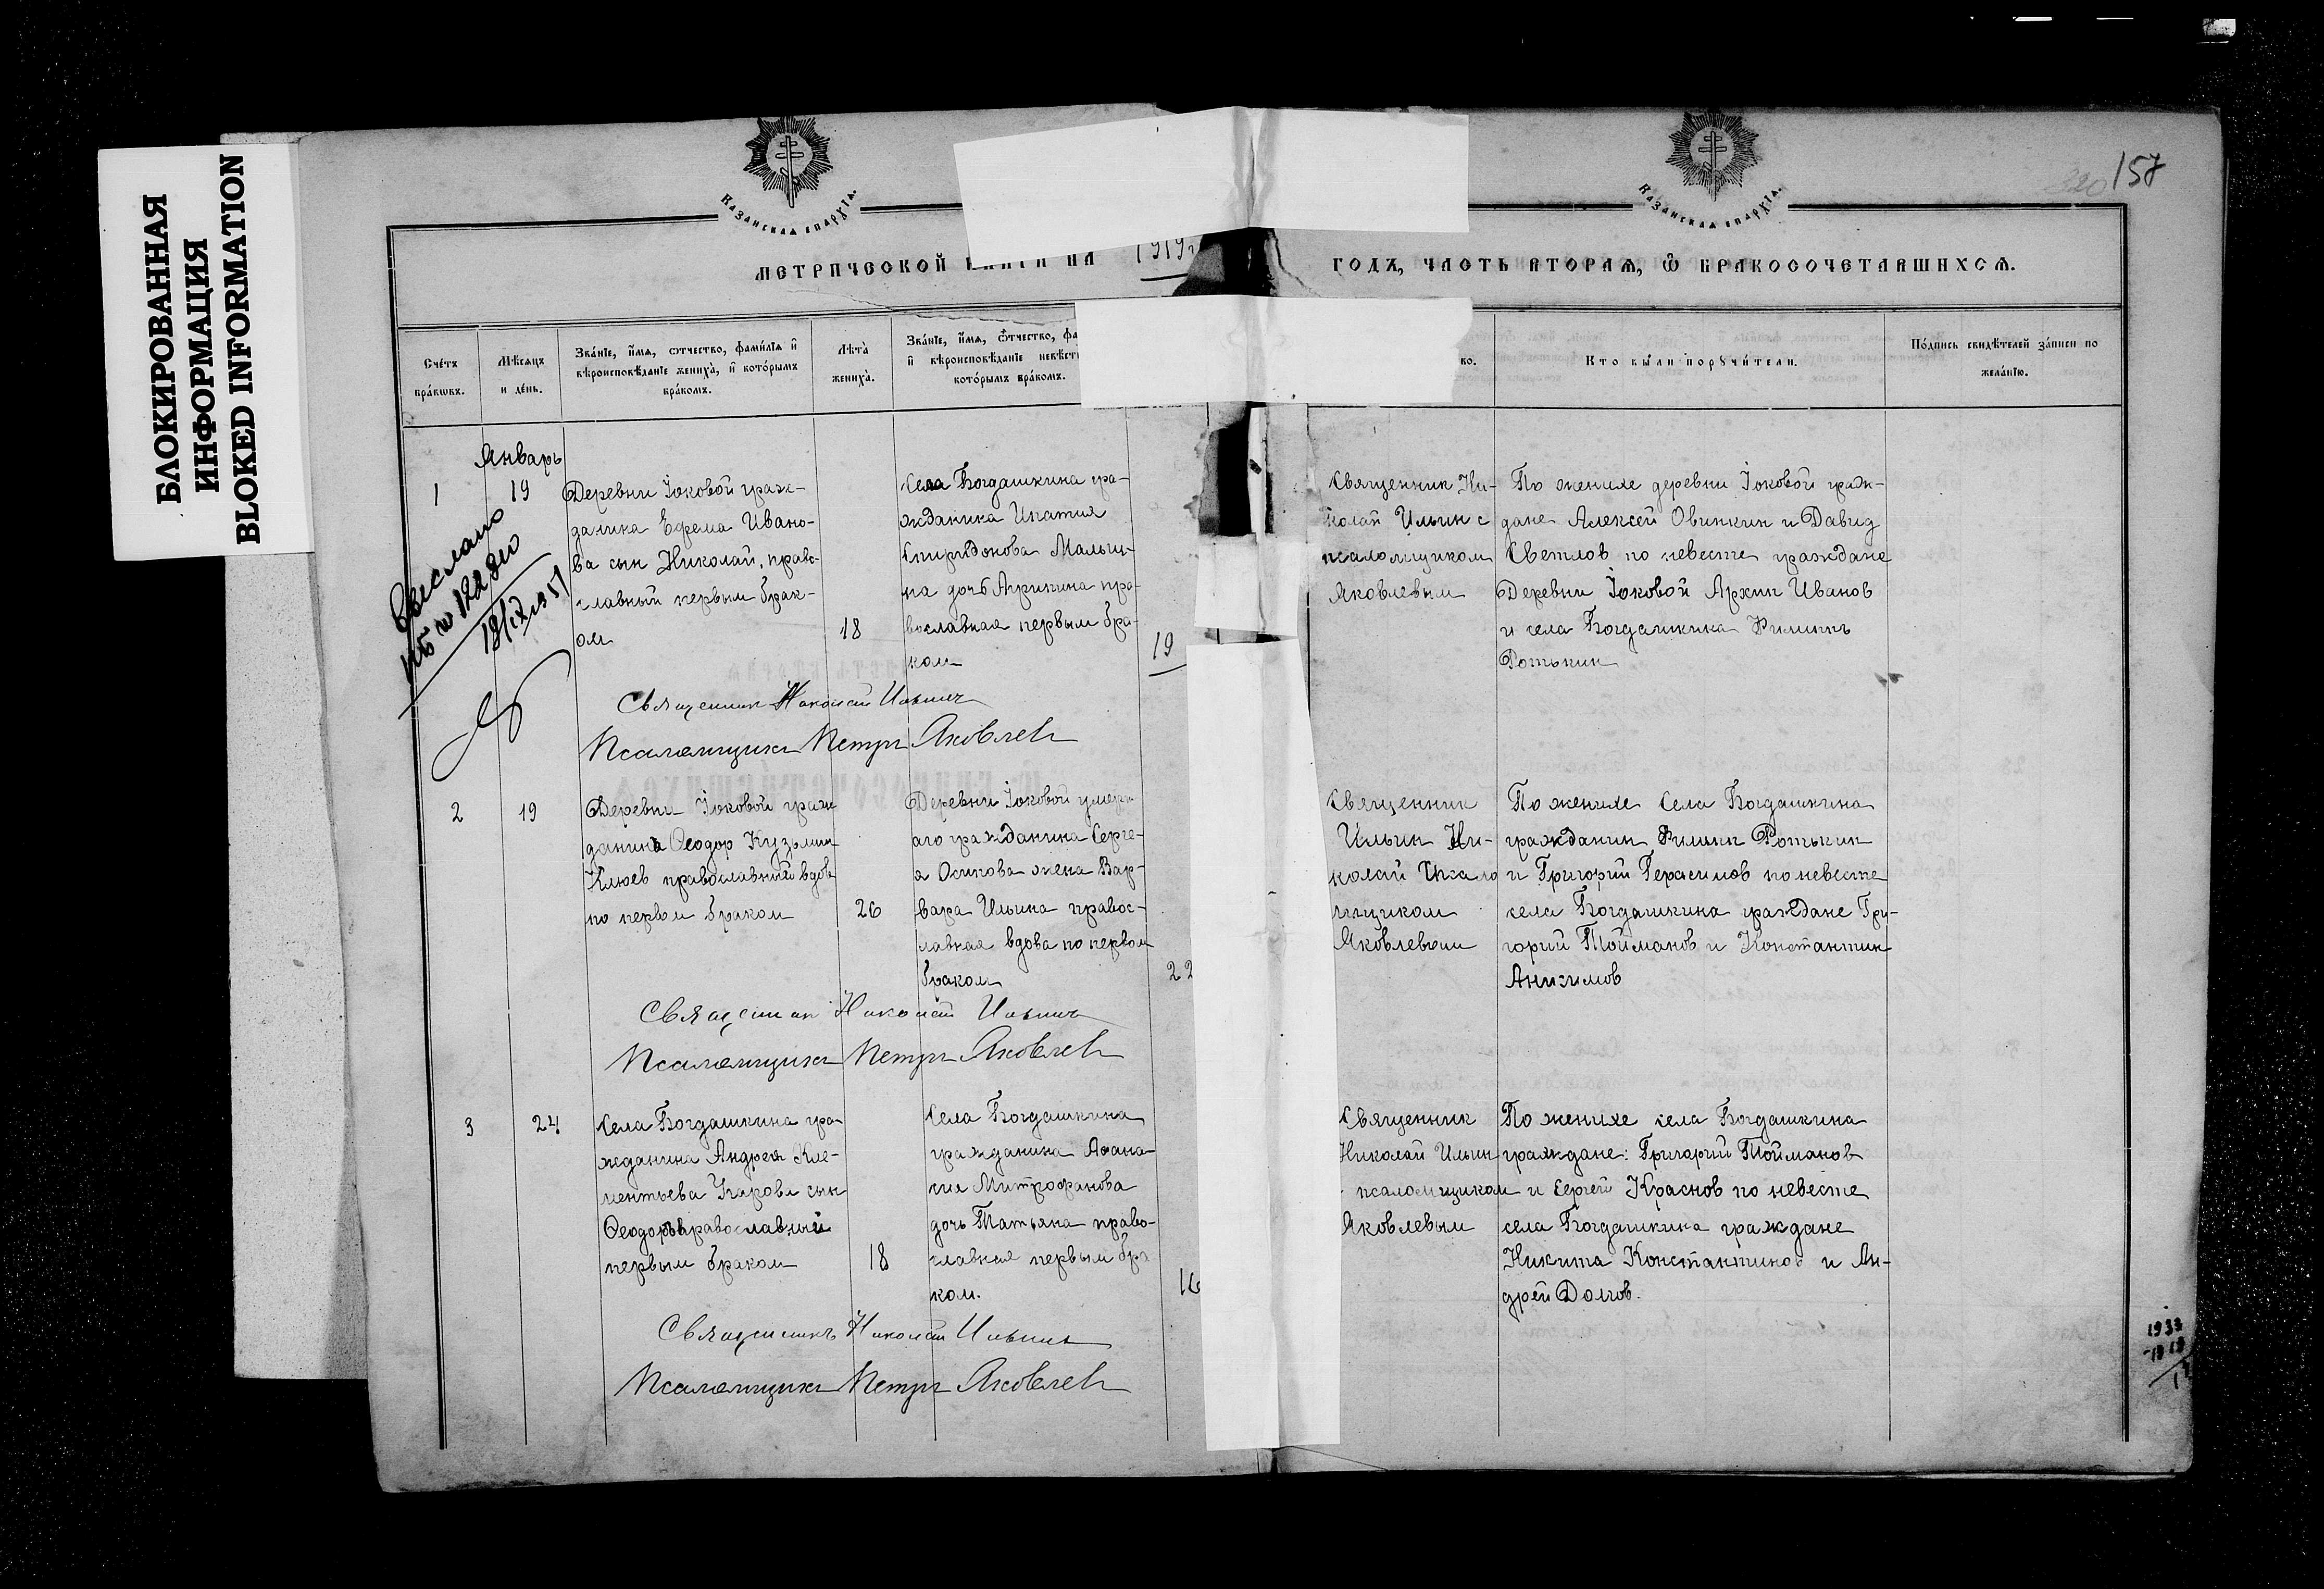 БЛОКИРОВАННАЯ
ИНФОРМАЦИЯ
BLOKED INFORMATION
Казанская епархїа.
Казанская епархїа.
157
МЕТРИЧЕСКОЙ КНИГИ НА 1919 г
ГОДЪ, ЧАСТЬ ВТОРАѦ, Ѿ БРАКОСОЧЕТАВШИХСѦ.
Счетъ браковъ.
Мѣсяцъ и день.
Званїе, имя, отчество, фамилїя и
вѣроисповѣданїе жениха, и которымъ
бракомъ.
Лѣта
жениха.
Званїе, имя, отчество, фа
и вѣроисповѣданїе невѣст
которымъ бракомъ.
во.
Кто были поручители.
Подпись свидѣтелей записи по
желанїю.
Январь
1
19
Деревни Іоковой граж-
данина Ефрема Ивано-
ва сын Николай, право
славный первым брак-
ом
18
Села Богдашкина гра-
жданина Игнатия
Спиридонова Малыш-
на дочь Агрипина пра-
вославная первым бра-
ком
19
Священник Ни-
колай Ильин с
псаломщиком
Яковлевым
По женихе деревни Іоковой граж-
дане Алексей Овинкин и Давид
Светлов по невесте граждане
Деревни Іоковой Архип Иванов
и села Богдашкина Филиппъ
Ротькин
Выслано
18/IX 1951
Священник Николай Ильин
Псаломщикъ Петръ Яковлевъ
2
19
Деревни Іоковой граж
данина Ѳеодор Кузьмин
Клюев православный вдов
по первом браком
26
Деревни Іоковой умерш
аго гражданина Серге-
я Осипова жена Вар-
вара Ильина правос-
лавная вдова по первом
браком
22
Священник
Ильин Ни-
колай с псало
мщиком
Яковлевым
По женихе Села Богдашкина
гражданин Филипп Ротькин
и Григорий Герасимов по невесте
села Богдашкина граждане Гри-
горий Тойманов и Константин
Анисимов
Священник Николай Ильинъ
Псаломщикъ Петръ Яковлевъ
3
24
Села Богдашкина гра
жданина Андрея Кле-
ментьева Угарова сын
Ѳеодоръ православный
первым браком
18
Села Богдашкина
гражданина Афана-
сия Митрофанова
дочь Татьяна право-
славная первым бра
ком.
16
Священник
Николай Ильин
псаломщиком
Яковлевым
По женихе села Богдашкина
граждане: Григорий Тойманов
и Сергей Краснов по невесте
села Богдашкина граждане
Никита Константинов и Ан-
дрей Долгов.
Священникъ Николай Ильинъ
Псаломщикъ Петръ Яковлевъ